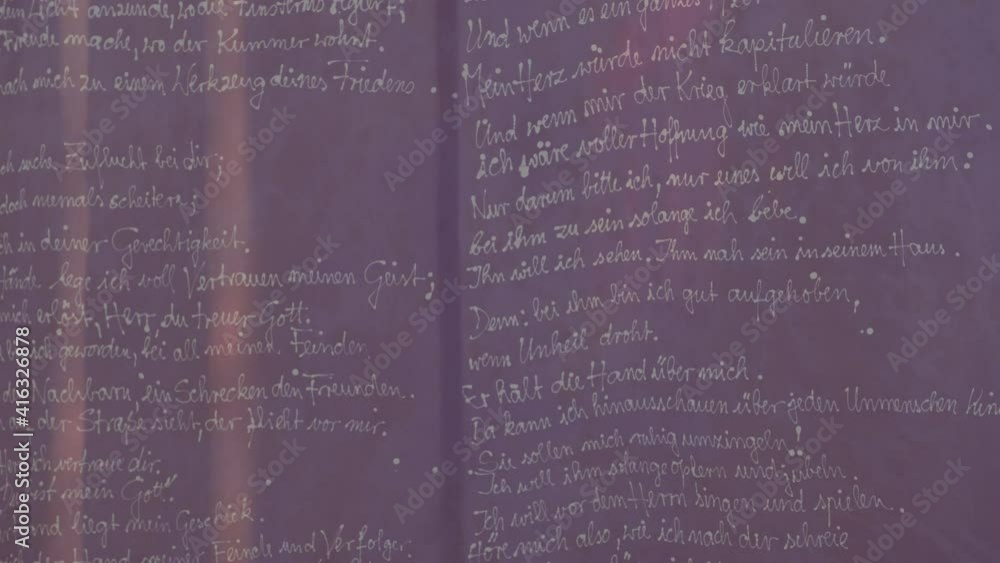 ein Licht anzünde, wo die Finsternis regiert;
Freude mache, wo der Kummer wohnt.
mach mich zu einem Werkzeug deines Friedens.
ich suche Zuflucht bei dir;
doch niemals scheitern;
ich in deiner Gerechtigkeit.
Hände lege ich voll Vertrauen meinen Geist;
mich erlöst, Herr, du treuer Gott.
bin ich geworden, bei all meinen Feinden
den Nachbarn, ein Schrecken den Freunden.
auf der Straße sieht, der flieht vor mir.
vertraue dir.
bist mein Gott.
Hand liegt mein Geschick.
der Hand meiner Feinde und Verfolger.
Und wenn es ein ganzes
Mein Herz würde nicht kapitulieren.
Und wenn mir der Krieg erklärt würde
ich wäre voller Hoffnung wie mein Herz in mir.
Nur darum bitte ich, nur eines will ich von ihm:
bei ihm zu sein solange ich lebe.
Ihn will ich sehen. Ihm nah sein in seinem Haus.
Denn: bei ihm bin ich gut aufgehoben,
wenn Unheil droht.
Er hält die Hand über mich.
Da kann ich hinausschauen über jeden Unmenschen
Sie sollen mich ruhig umzingeln!
Ich will ihm solange opfern und jubeln
Ich will vor dem Herrn singen und spielen
Höre mich also, wie ich nach dir schreie
Adobe Stock | #416326878